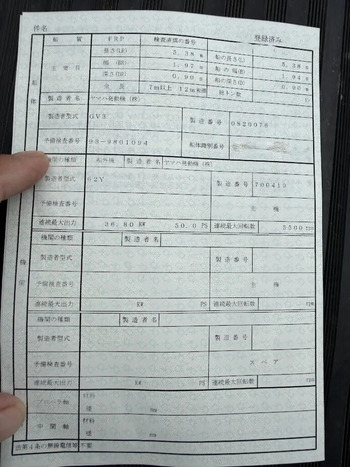 件名
船質 FRP 検査直後の番号 登録済み
長さ(LR) 5.38 m 船の長さ(L) 5.38 m
主要目 幅(BR) 1.97 m 船の幅(B) 1.94 m
深さ(DR) 0.90 m 深さ(D) 0.90 m
全長 7m以上 12m未満 総トン数
船体
製造者名 ヤマハ発動機(株)
製造者型式 GV3 製造番号 0820076
予備検査番号 98-9801094 船体識別番号
機関の種類 船外機 製造者名 ヤマハ発動機(株)
製造者型式 62Y 製造番号 700419
予備検査番号 主機
連続最大出力 36.80 KW 50.0 PS 連続最大回転数 5500 rpm
機関の種類 製造者名
製造者型式 製造番号
予備検査番号 主機
連続最大出力 KW PS 連続最大回転数 rpm
機関
機関の種類 製造者名
製造者型式 製造番号
予備検査番号 スペア
連続最大出力 KW PS 連続最大回転数 rpm
プロペラ軸 材料
径 mm
中間軸 材料
径 mm
法第4条の無線電信等 不要